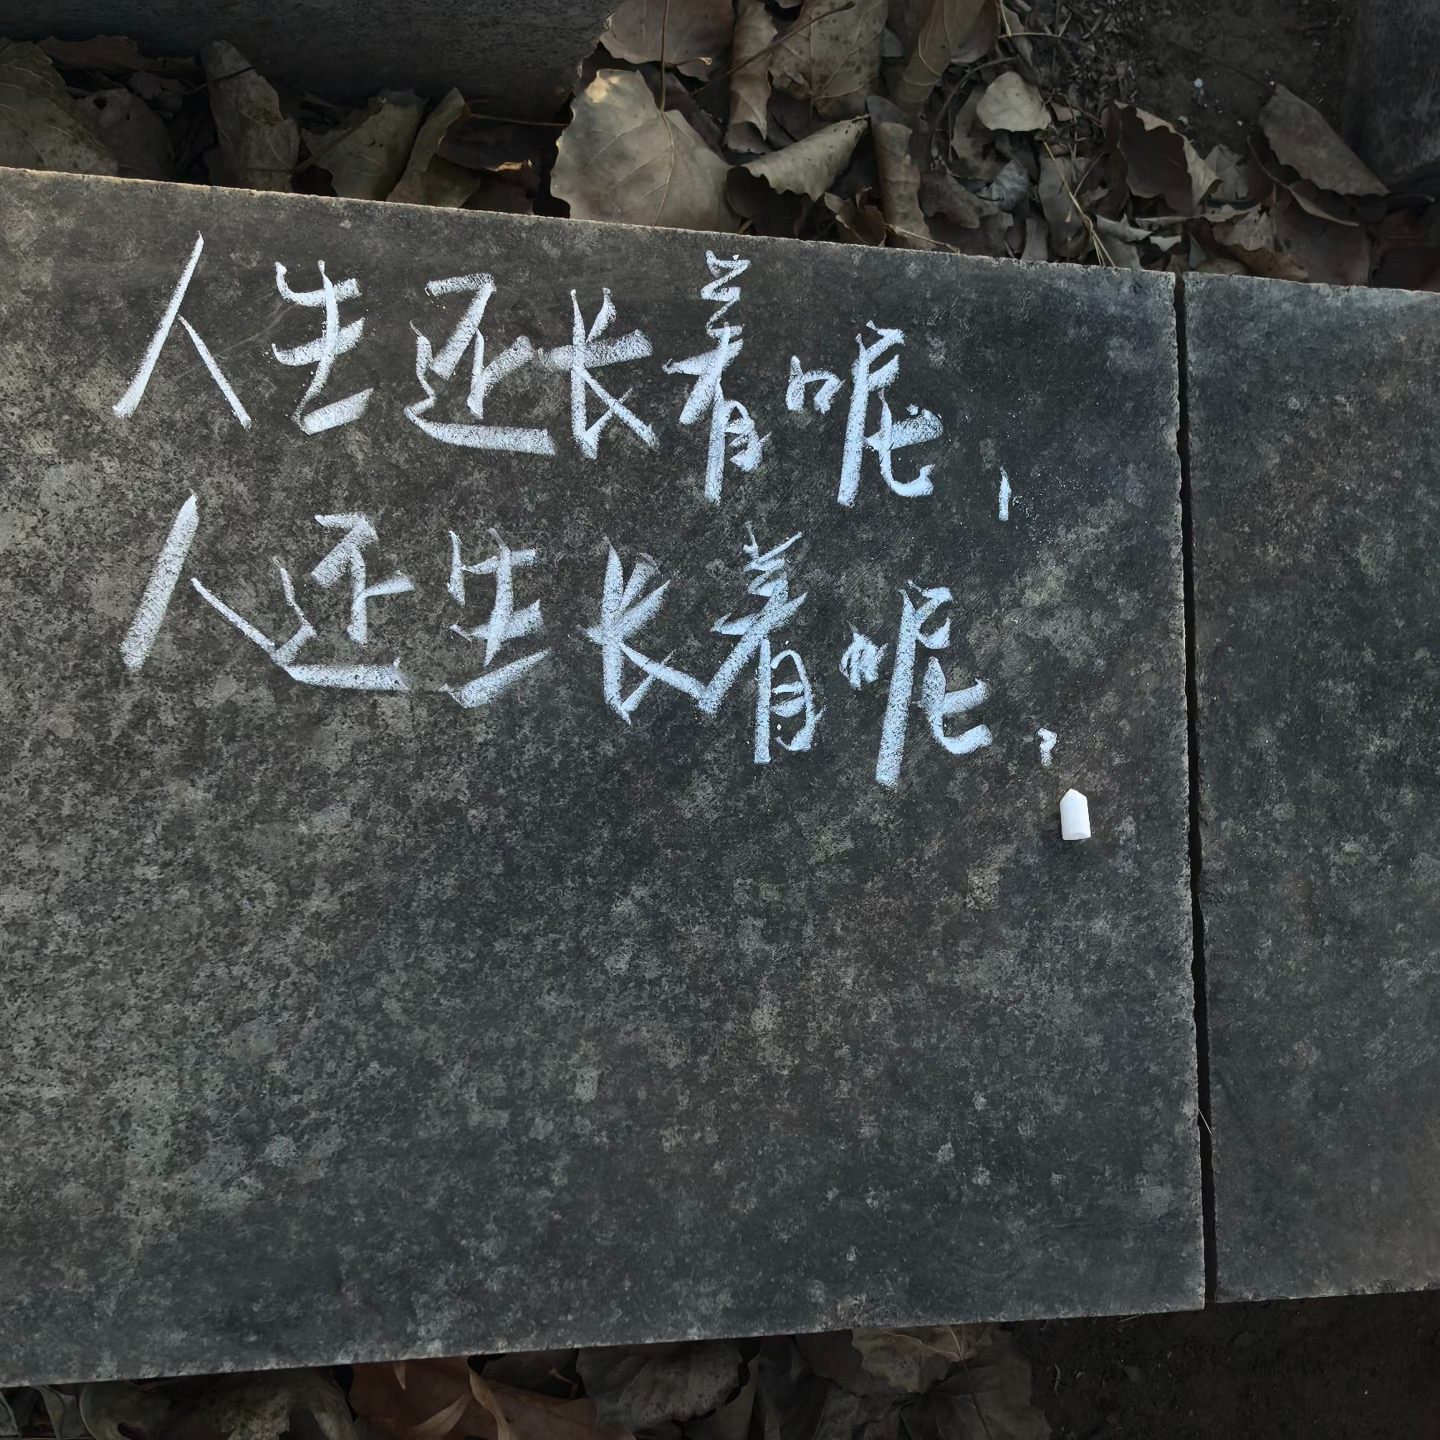 人生还长着呢，
人还生长着呢，